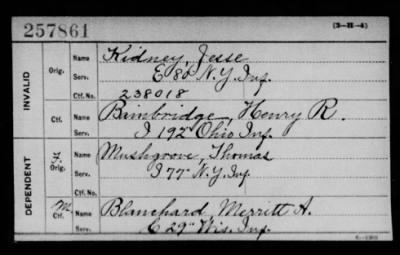 257861 (3-H-4)
INVALID
Orig. Name Kidney, Jesse
Serv. E 80 N.Y. Inf.
Ctf. No. 238018
Ctf. Name Bimbridge, Henry R.
Serv. I 192" Ohio Inf.
DEPENDENT
Orig. Name Mushgrove, Thomas
Serv. I 77" N.Y. Inf.
Ctf. No.
M. Ctf. Name Blanchard, Merritt A.
Serv. E 29" Wis. Inf.